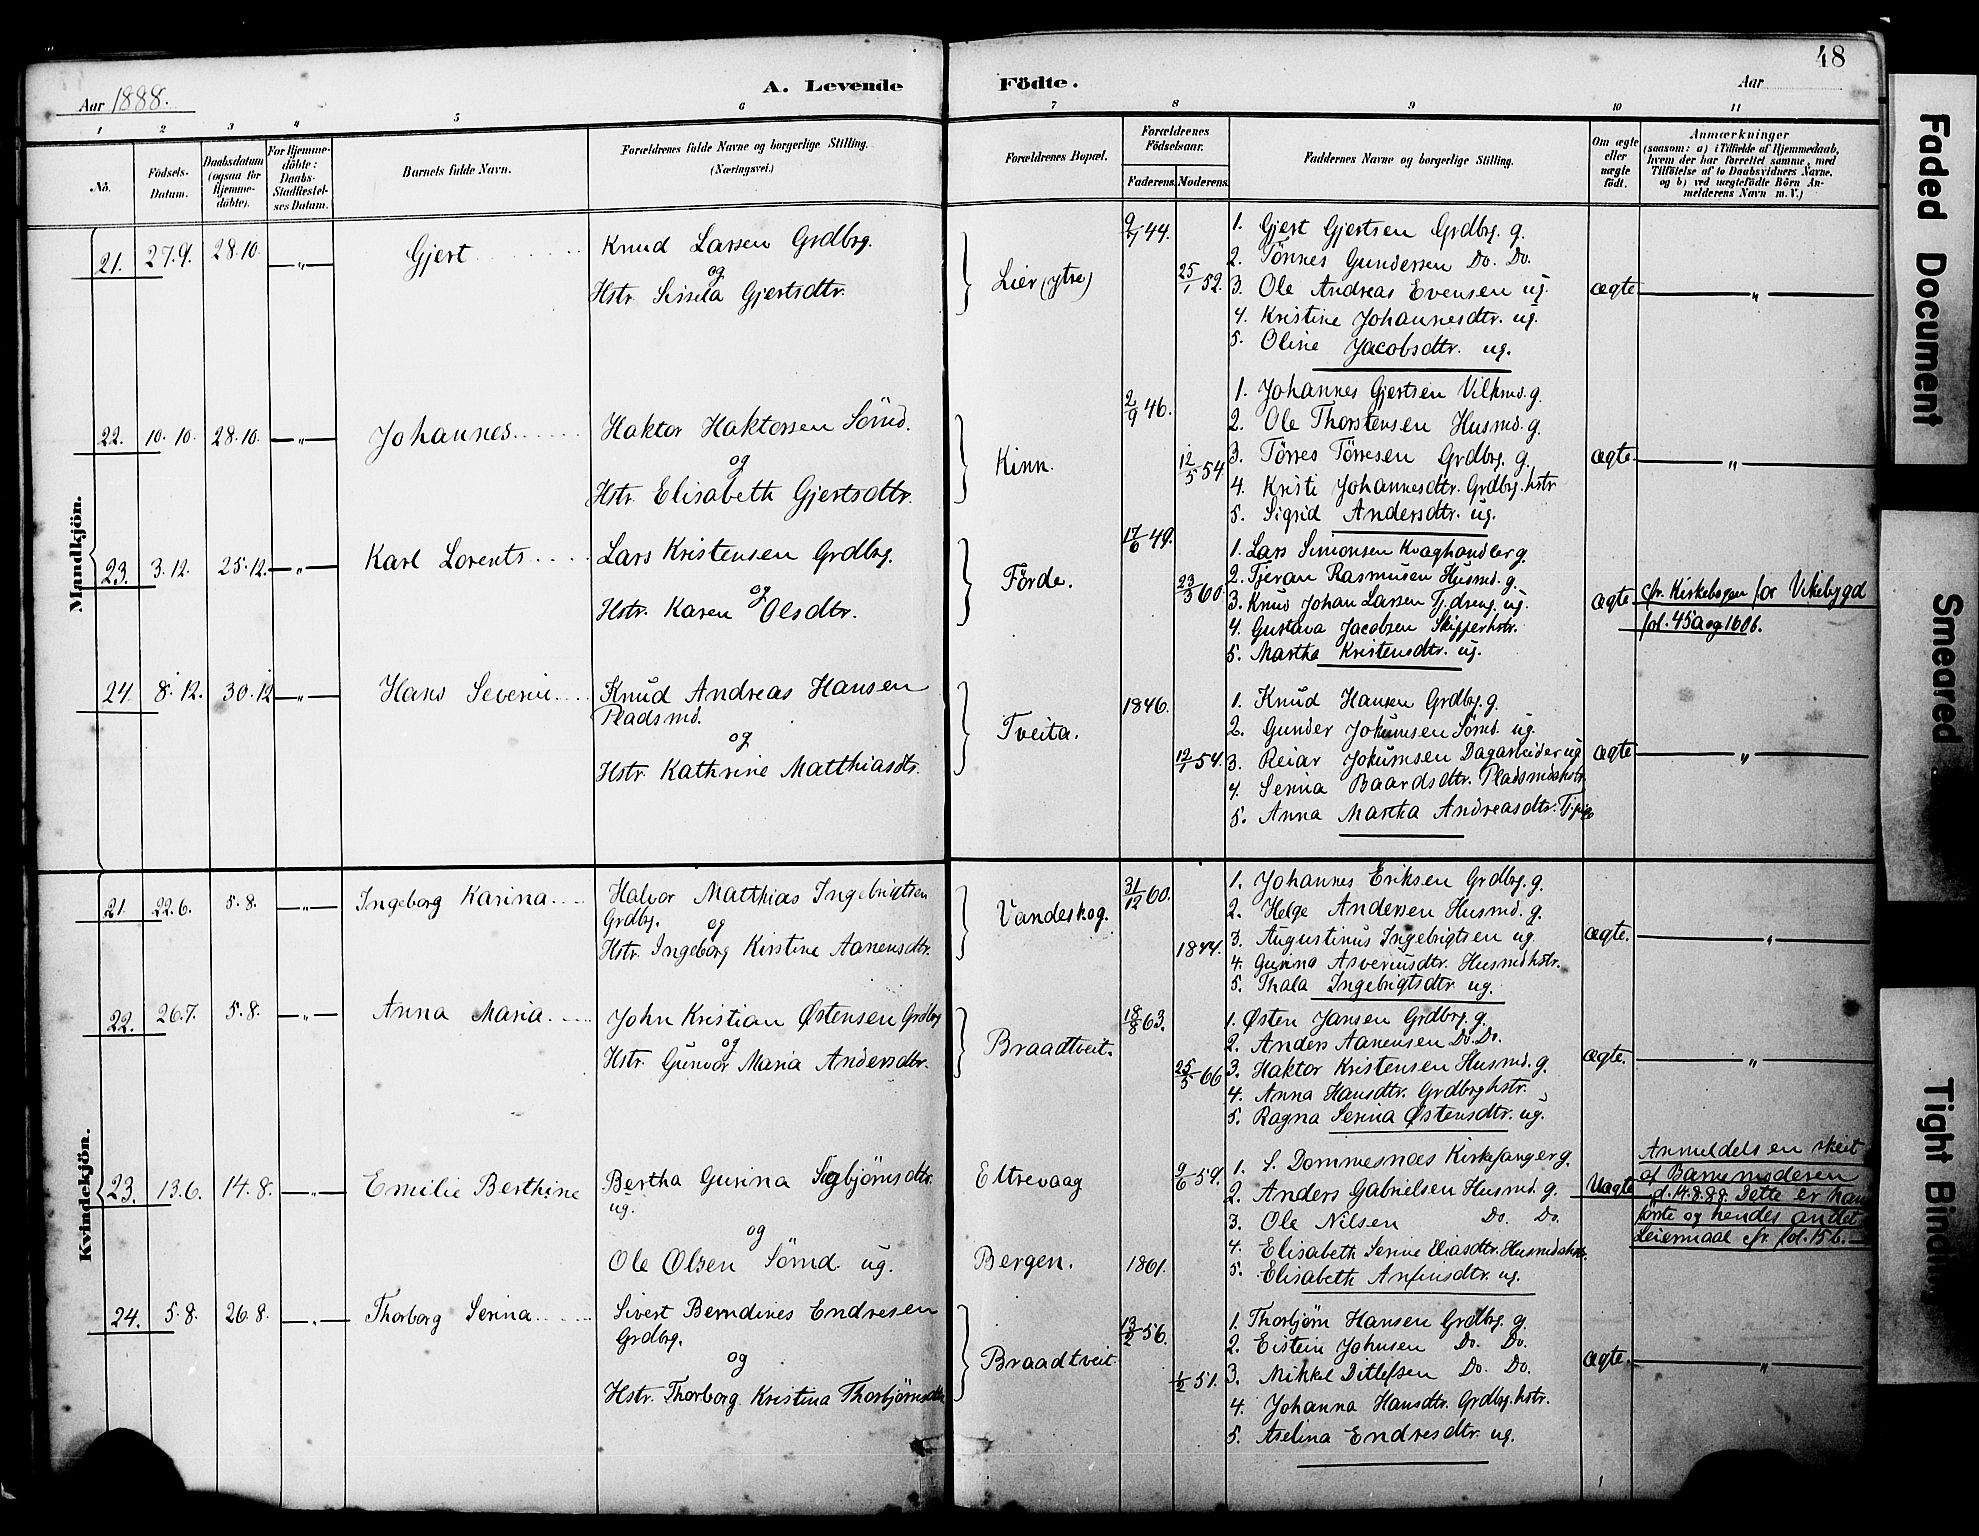 48
Aar 1888.
A. Levende
Födte.
Aar
1 2 3 4 5 6 7 8 9 10 11
No.
Födsels-
Datum.
Daabsdatum
(ogsaa for
Hjemme-
döbte).
For Hjemme-
döbte:
Daabs-
Stadfæstel-
ses Datum.
Barnets fulde Navn.
Forældrenes fulde Navne og borgerlige Stilling.
(Næringsvei.)
Forældrenes Bopæl.
Forældrenes
Födselsaar.
Faderens. Moderens.
Faddernes Navne og borgerlige Stilling.
Om ægte
eller
uægte
födt.
Anmærkninger
(saasom: a) i Tilfælde af Hjemmedaab,
hvem der har forrettet samme, med
Tilföielse af to Daabsvidners Navne,
og b) ved uægtefödte Börn An-
melderens Navn m. V.)
Mandkjön.
21. 27.9. 28.10. —„— Gjert
Knud Larsen Grdbrg.
og
Hstr. Sissela Gjertsdtr.
Lier (ytre)
9/7 44.
25/1 52.
1. Gjert Gjertsen Grdbrg. g.
2. Tönnes Gundersen Do. Do.
3. Ole Andreas Evensen ug.
4. Kristine Johannesdtr. ug.
5. Oline Jacobsdtr. ug.
ægte —„—
22. 10.10. 28.10. —„— Johannes
Haktor Haktorsen Sömd.
og
Hstr. Elisabeth Gjertsdtr.
Kinn.
2/9 46.
12/5 54
1. Johannes Gjertsen Vilksmd. g.
2. Ole Thorstensen Husmd. g.
3. Törres Törresen Grdbrg. g.
4. Kristi Johannesdtr. Grdbrg. hstr
5. Sigrid Andersdtr. ug.
ægte. —„—
23. 3.12. 25.12. —„— Karl Lorents
Lars Kristensen Grdbrg.
og
Hstr. Karen Olsdtr.
Förde.
17/6 49.
23/3 60.
1. Lars Simonsen Kvaghandler g.
2. Tjeran Rasmusen Husmd. g.
3. Knud Johan Larsen Tj.dreng. ug.
4. Gustava Jacobsen Skipperhstr.
5. Martha Kristensdtr. ug.
ægte
cfr. Kirkebogen for Vikebygd
fol. 45a og 160b.
24. 8.12. 30.12 —„— Hans Severin
Knud Andreas Hansen
Pladsmd.
og
Hstr. Kathrine Matthiasdtr.
Tveita.
1846.
12/1 54.
1. Knud Hansen Grdbrg. g.
2. Gunder Jokumsen Sömd. ug.
3. Reiar Jokumsen Dagarbeider ug.
4. Serina Baardsdtr. Pladsmdshstr.
5. Anna Martha Andreasdtr. Tj.pige
ægte —„—
Kvindekjön.
21. 22.6. 5.8. —„— Ingeborg Karina
Halvor Matthias Ingebrigtsen
Grdbg.
og
Hstr. Ingeborg Kirstine Aanensdtr.
Vandeskog.
31/12 60.
1844.
1. Johannes Eriksen Grdbrg. g.
2. Helge Andersen Husmd. g.
3. Augustinus Ingebrigtsen ug.
4. Gurina Asveriusdtr. Husmdhstr.
5. Thala Ingebrigtsdtr ug.
ægte. —„—
22. 26.7. 5.8. —„— Anna Maria
John Kristian Østensen Grdbrg
og
Hstr. Gunvor Maria Andersdtr.
Braadtveit.
18/8 63.
25/5 66
1. Østen Jansen Grdbrg. g.
2. Anders Aanensen Do. Do.
3. Haktor Kristensen Husmd. g.
4. Anna Hansdtr. Grdbrghstr.
5. Ragna Serina Østensdtr. ug.
ægte. —„—
23. 13.6. 14.8. —„— Emilie Berthine
Bertha Gurina Sigbjörnsdtr.
ug.
og
Ole Olsen Sömd. ug.
Eltrevaag
Bergen.
1861.
9/6 59.
1. S. Dommesnæs Kirkesanger g.
2. Anders Gabrielsen Husmd. g.
3. Ole Nilsen Do. Do.
4. Elisabeth Serine Eliasdtr. Husmdshstr.
5. Elisabeth Anfinsdtr. ug.
Uægte
Anmeldelsen skeet
af Barnemoderen
d. 14.8.88. Dette er hans
förste og hendes andet
Leiermaal cfr. fol. 15b.
24. 5.8. 26.8. —„— Thorborg Serina
Sivert Berndines Endresen
Grdbrg.
og
Hstr. Thorborg Kristina Thorbjörnsdtr
Braadtveit
13/2 56.
1/2 51.
1. Thorbjörn Hansen Grdbrg. g.
2. Eistein Johnsen Do. Do.
3. Mikkel Ditlefsen Do. Do.
4. Johanna Hansdtr. Grdbrg. hstr.
5. Aselina Endresdtr. ug.
ægte. —„—
Faded Document
Smeared
Tight Binding